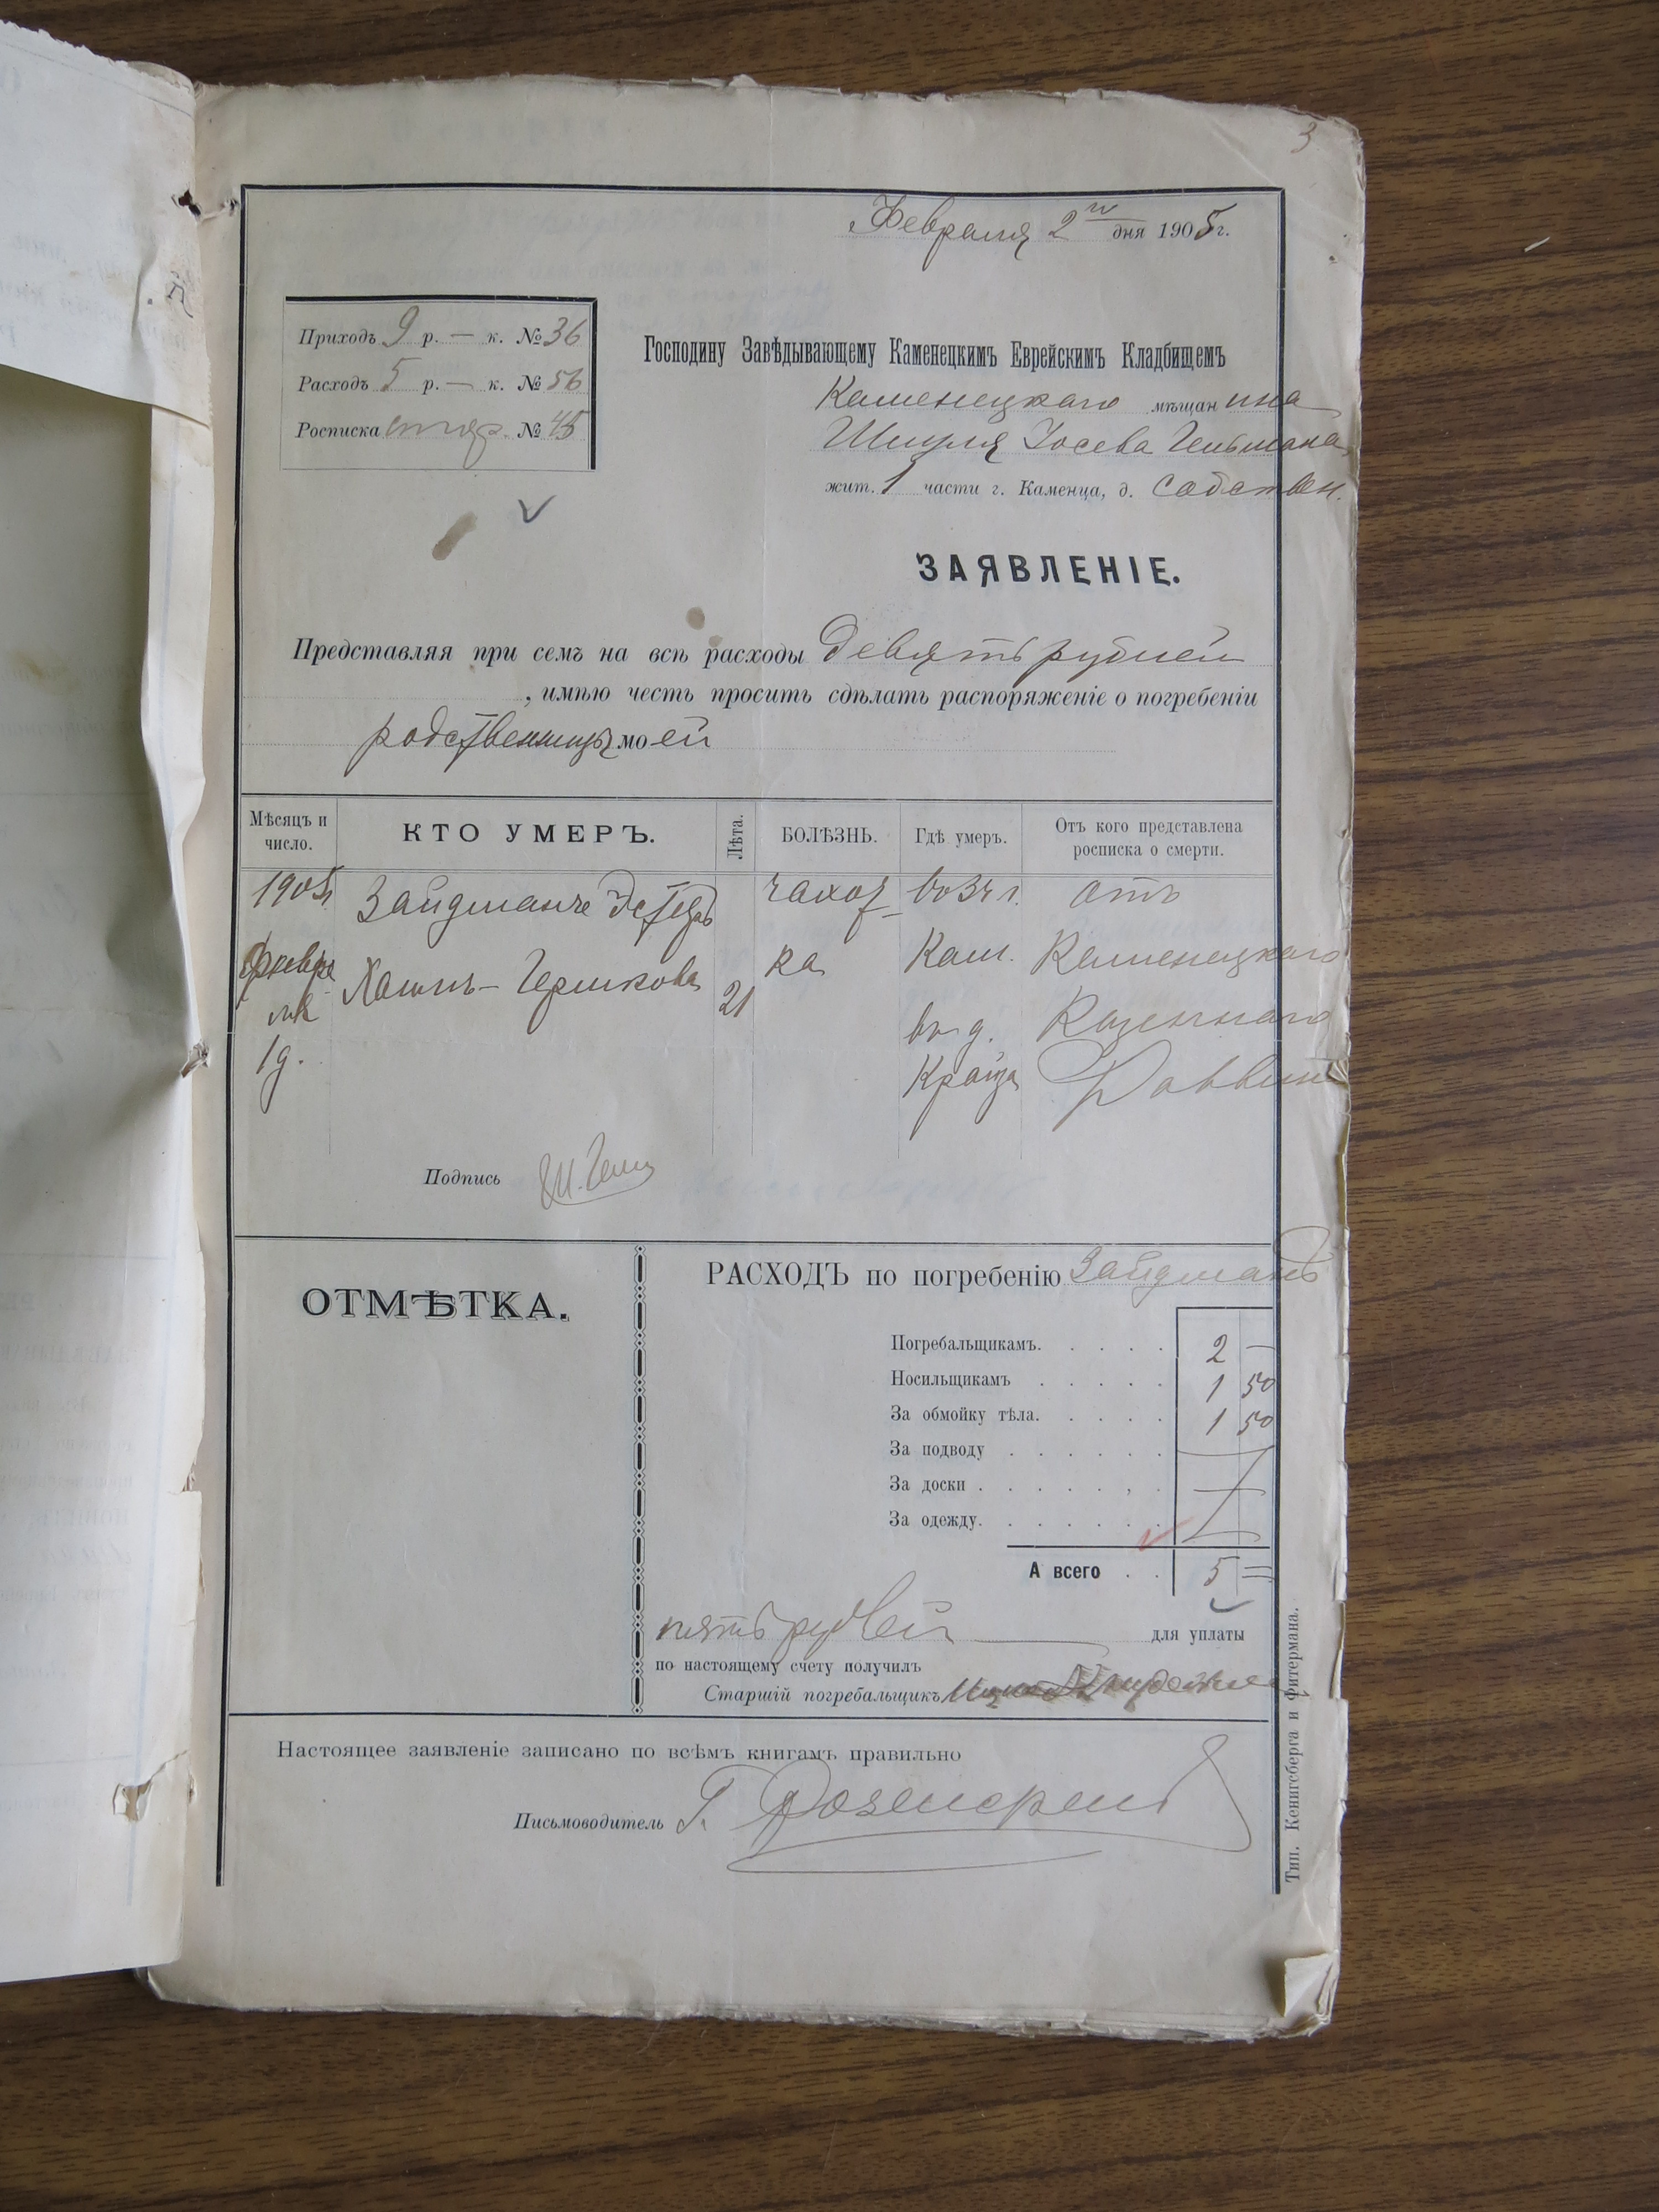 3
Февраля 2го дня 1905 г.
Приходъ 9 р. — к. № 36
Расходъ 5 р. — к. № 56
Росписка № 45
Господину Завѣдывающему Каменецкимъ Еврейскимъ Кладбищемъ
Каменецкаго мѣщанина
Шмуля Іосева Гельмана
жит. 1 части г. Каменца, д. собствен.
ЗАЯВЛЕНІЕ.
Представляя при семъ на всѣ расходы девять рублей
, имѣю честь просить сдѣлать распоряженіе о погребеніи
родственницы моей
Мѣсяцъ и число.
КТО УМЕРЪ.
Лѣта.
БОЛѢЗНЬ.
Гдѣ умеръ.
Отъ кого представлена росписка о смерти.
1905 г.
Февра
ля
1 д.
Зайдман Эстеръ
Гершкова
21
чахот-
ка
Кам.
въ д.
Крайза
отъ
Каменецкаго
Казеннаго
Раввин
Подпись Ш. Гельм
ОТМѢТКА.
РАСХОДЪ по погребенію Зайдманъ
Погребальщикамъ. 2 —
Носильщикамъ 1 50
За обмойку тѣла. 1 50
За подводу
За доски
За одежду.
А всего 5 =
пять рублей для уплаты
по настоящему счету получилъ
Старшій погребальщикъ
Настоящее заявленіе записано по всѣмъ книгамъ правильно
Письмоводитель Г.
Тип. Кенигсберга и Фитермана.